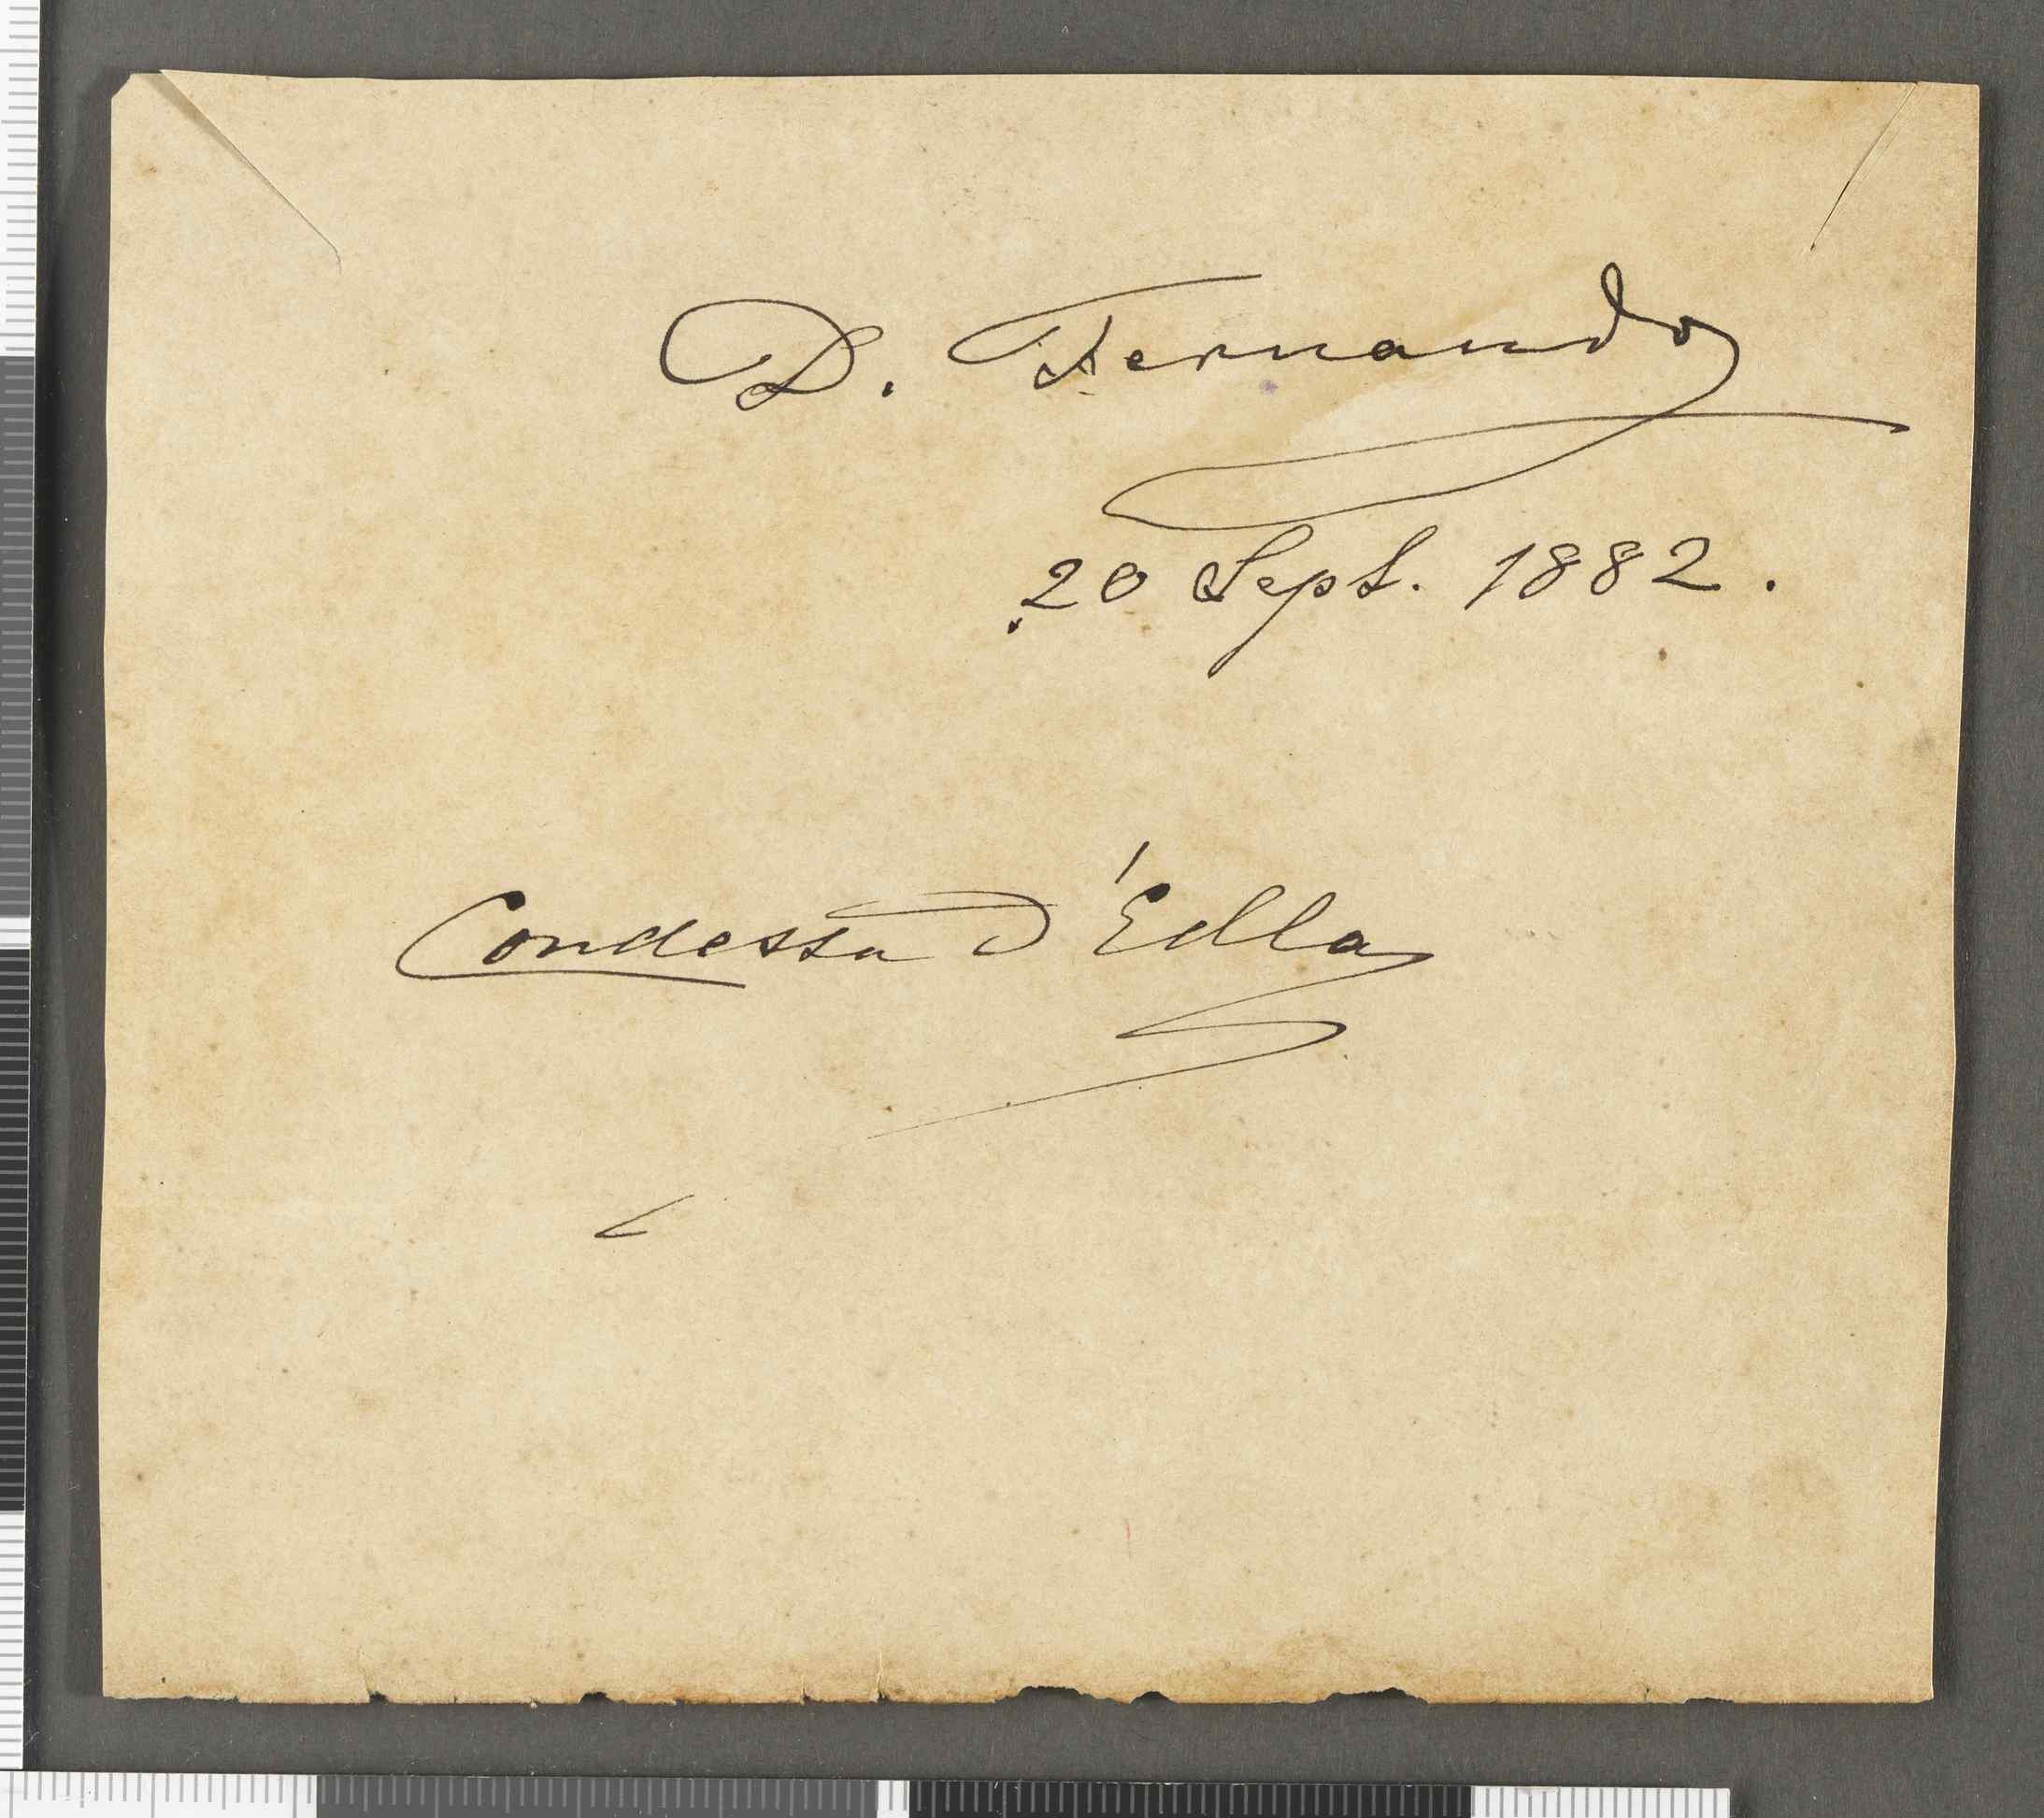 D. Fernando
20 Sept. 1882.
Condessa d'Edla